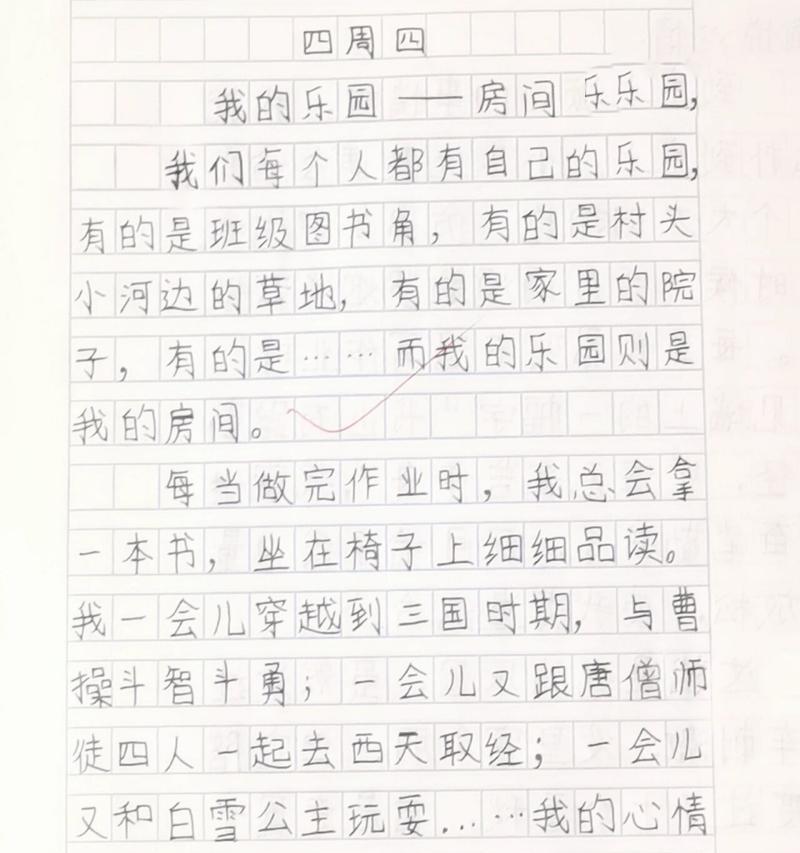 四周四
我的乐园——房间乐乐园,
我们每个人都有自己的乐园,
有的是班级图书角,有的是村头
小河边的草地,有的是家里的院
子,有的是……而我的乐园则是
我的房间。
每当做完作业时,我总会拿
一本书,坐在椅子上细细品读。
我一会儿穿越到三国时期,与曹
操斗智斗勇;一会儿又跟唐僧师
徒四人一起去西天取经;一会儿
又和白雪公主玩耍……我的心情